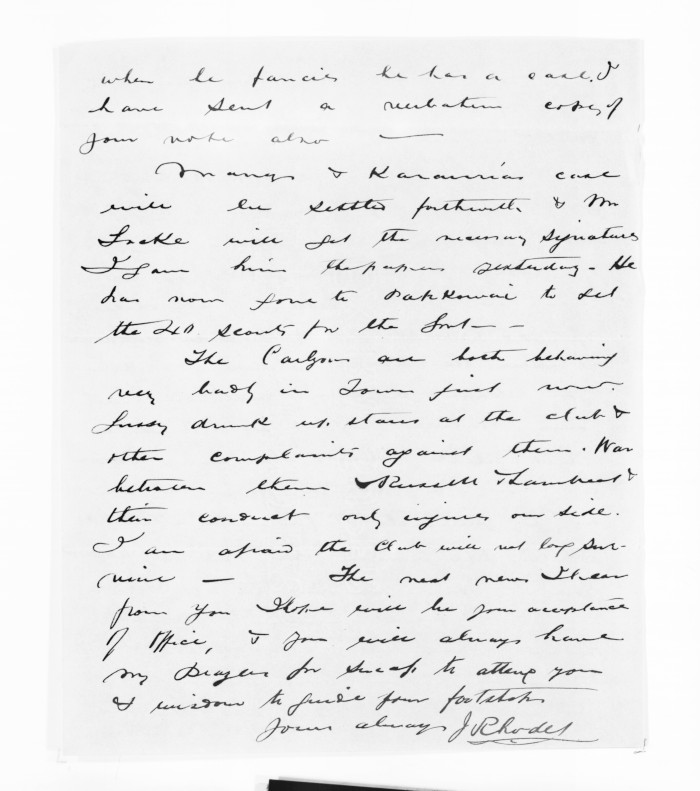 when he fancies he has a case. I
have sent a verbatim copy of
your note also —
Manys & Karauria's case
will be settled forthwith & Mr
Locke will get the necessary signatures
I gave him the papers yesterday - He
has now gone to Pakkowai to set
the scouts for the front —
The Carlyons are both behaving
very badly in Town just now.
drunk up stairs at the club &
other complaints against them. War
between them & Russell & Lambert &
their conduct only injures our side.
I am afraid the Club will not long sur-
vive — The next news I hear
from you I hope will be your acceptance
of office, & you will always have
my Prayers for success to attend you
& wisdom to guide your footsteps
Yours always J Rhodes